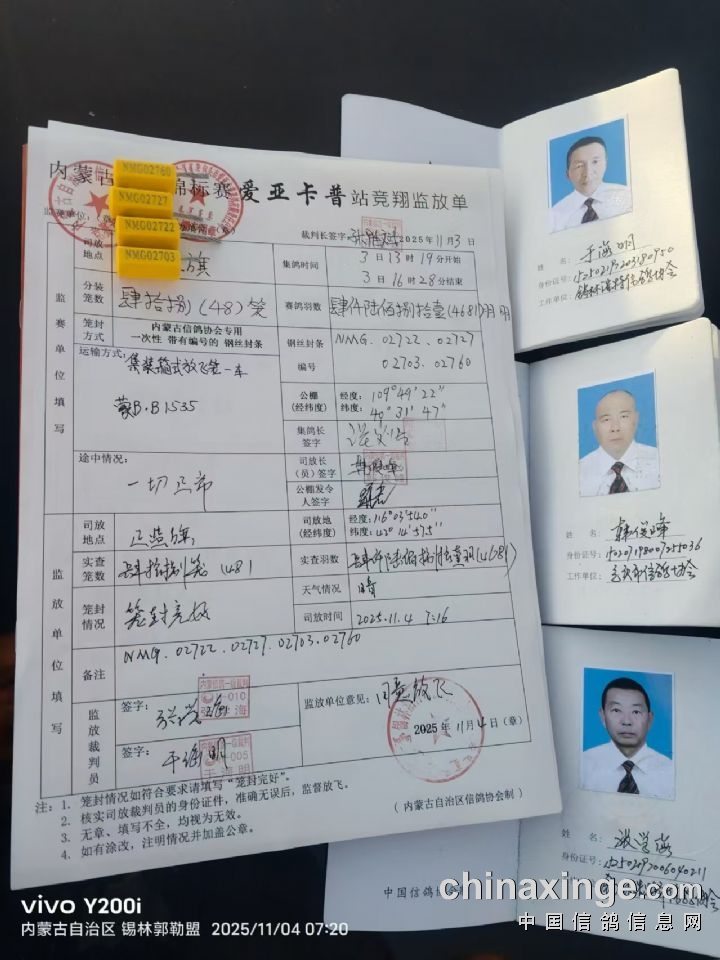 内蒙古
锦标赛爱亚卡普站竞翔监放单
NMG02760
NMG02727
NMG02722
NMG02703
裁判长签字
2025年11月3日
监赛单位填写
司放地点
旗
集鸽时间
3日13时19分开始
3日16时28分结束
分装笼数
肆拾捌(48)笼
赛鸽羽数
肆仟陆佰捌拾壹(4681)
笼封方式
内蒙古信鸽协会专用
一次性 带有编号的 钢丝封条
钢丝封条编号
NMG.02722.02727
02703.02760
运输方式:
集装箱式放飞笼一车
蒙B·B1535
公棚(经纬度)
经度:109°49′22″
纬度:40°31′47″
集鸽长签字
途中情况:
一切正常
司放长(员)签字
公棚发令人签字
监放单位填写
司放地点
正蓝旗
司放地(经纬度)
经度:116°03′54.0″
纬度:42°14′57.5″
实查笼数
肆拾捌笼(48)
实查羽数
肆仟陆佰捌拾壹羽(4681)
天气情况
晴
笼封情况
笼封完好
司放时间
2025.11.4 7:16
备注
NMG.02722.02727.02703.02760
监放裁判员
签字:
签字:于海明
010
005
于海明
监放单位意见:同意放飞
2025年11月4日(章)
注:1. 笼封情况如符合要求请填写“笼封完好”。
2. 核实司放裁判员的身份证件,准确无误后,监督放飞。
3. 无章、填写不全,均视为无效。
4. 如有涂改,注明情况并加盖公章。
(内蒙古自治区信鸽协会制)
姓名:于海明
身份证号:
工作单位:
姓名:韩俊峰
身份证号:
工作单位:
姓名:
身份证号:
中国信鸽协会
chinaxinge.com
中国信鸽信息网
vivo Y200i
内蒙古自治区 锡林郭勒盟 2025/11/04 07:20